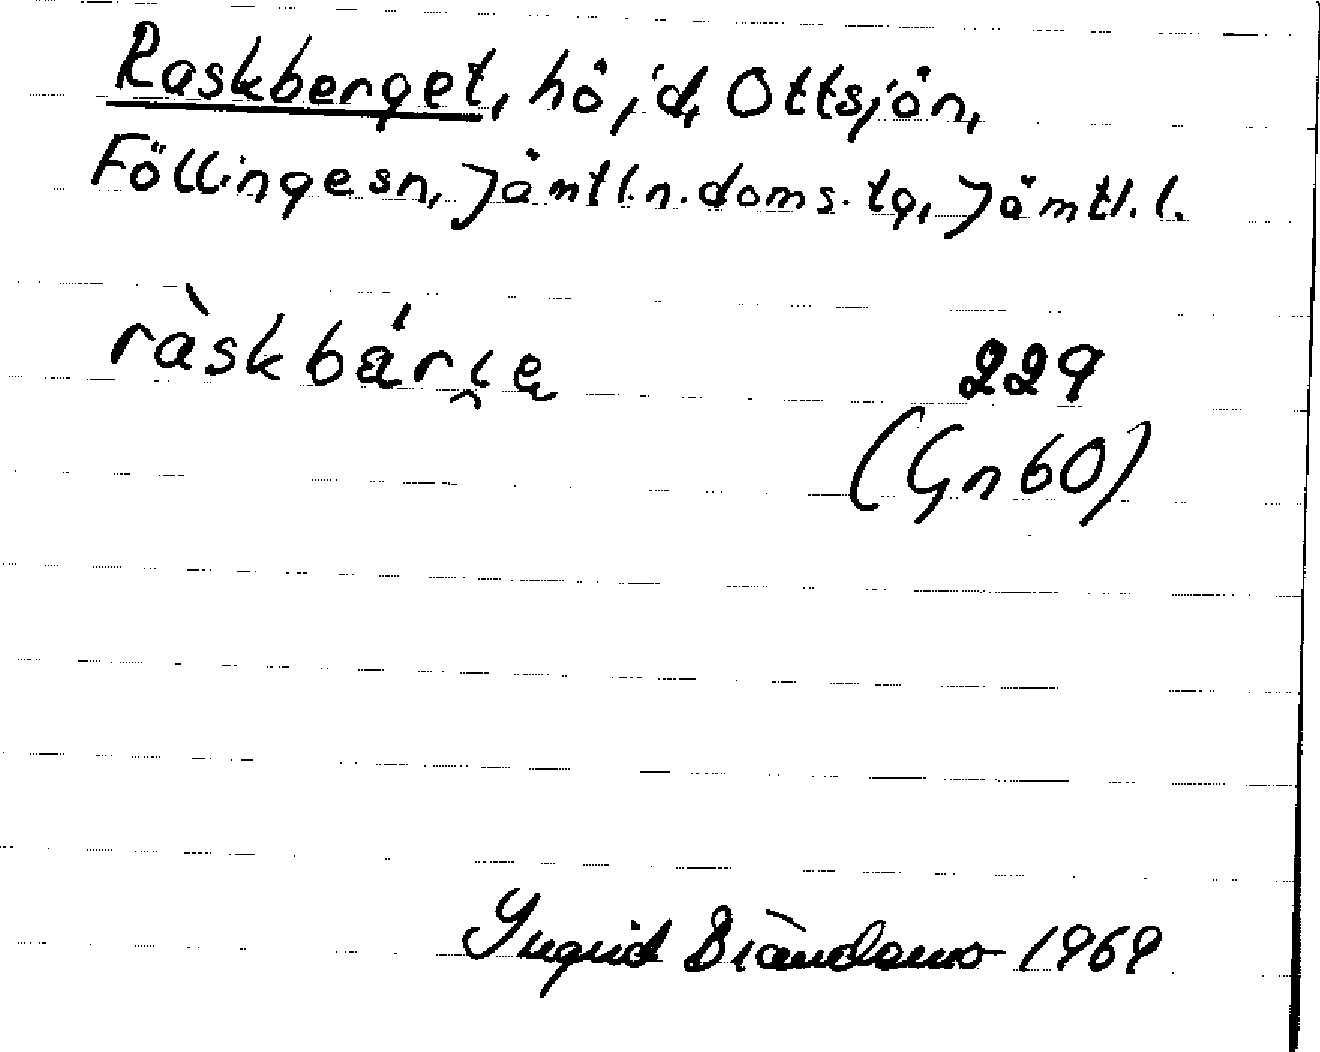 Raskberget, höjd, Ottsjön,
Föllinge sn, Jämtl.n.doms.tg, Jämtl.l.
ràskbárɩe 229
(Gn 60)
Ingrid 1969